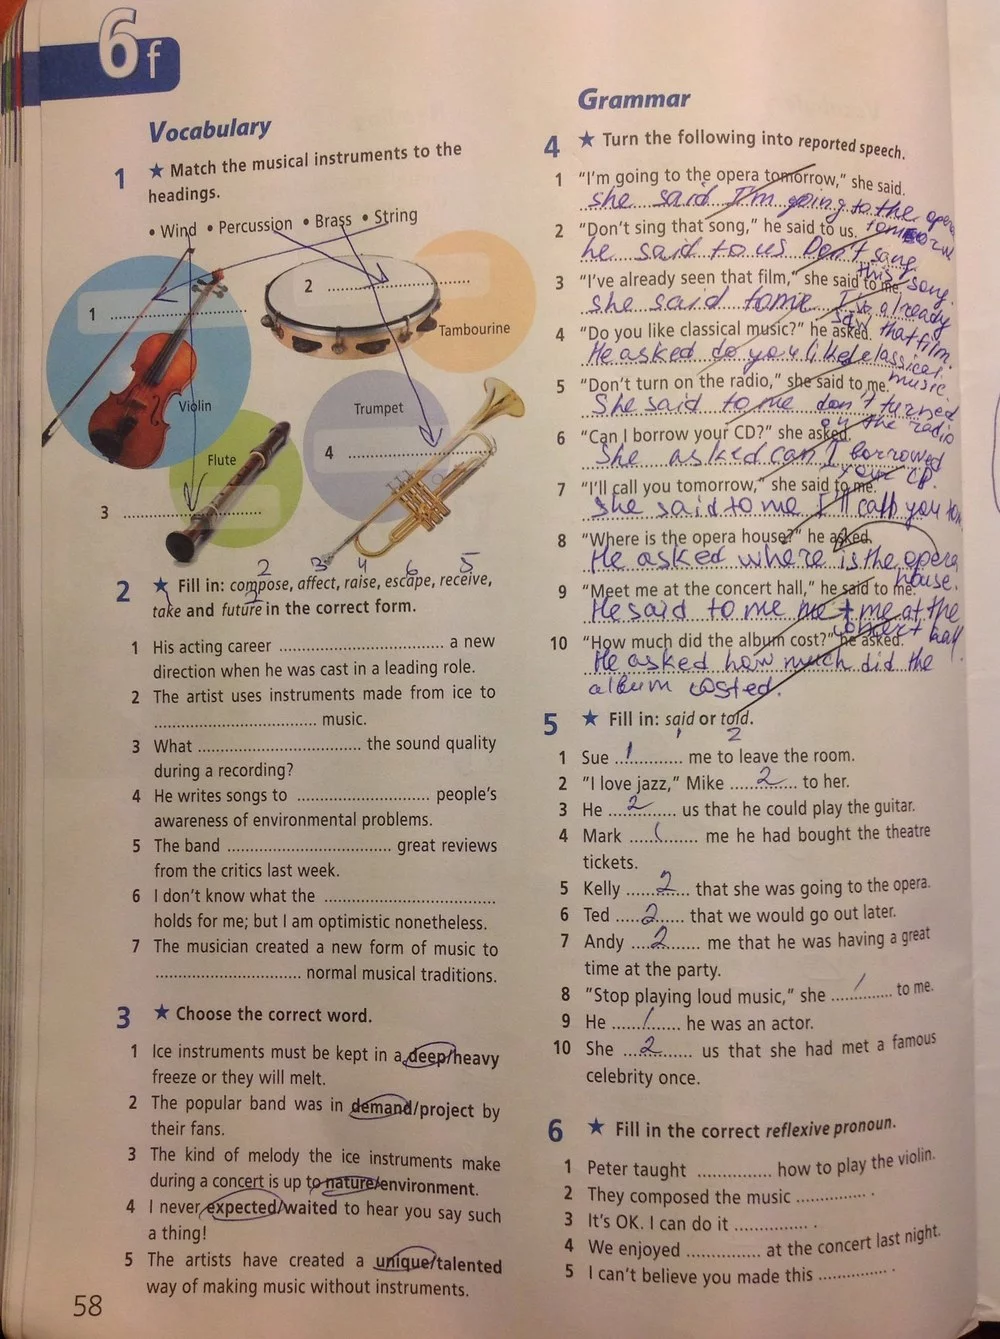 6f
Vocabulary
1 ★ Match the musical instruments to the
headings.
• Wind • Percussion • Brass • String
1 ........................
2 ........................
Tambourine
Violin
Trumpet
4 ........................
Flute
3 ........................
2 3 4 6 5
2 ★ Fill in: compose, affect, raise, escape, receive,
take and future in the correct form.
1 His acting career ........................ a new
direction when he was cast in a leading role.
2 The artist uses instruments made from ice to
........................ music.
3 What ........................ the sound quality
during a recording?
4 He writes songs to ........................ people's
awareness of environmental problems.
5 The band ........................ great reviews
from the critics last week.
6 I don't know what the ........................
holds for me; but I am optimistic nonetheless.
7 The musician created a new form of music to
........................ normal musical traditions.
3 ★ Choose the correct word.
1 Ice instruments must be kept in a deep/heavy
freeze or they will melt.
2 The popular band was in demand/project by
their fans.
3 The kind of melody the ice instruments make
during a concert is up to nature/environment.
4 I never expected/waited to hear you say such
a thing!
5 The artists have created a unique/talented
way of making music without instruments.
58
Grammar
4 ★ Turn the following into reported speech.
1 "I'm going to the opera tomorrow," she said.
she said I'm going to the opera
2 "Don't sing that song," he said to us.
he said to us Don't sang
this song.
3 "I've already seen that film," she said to me.
she said to me I've already
saw that film.
4 "Do you like classical music?" he asked.
He asked do you liked classical
music.
5 "Don't turn on the radio," she said to me.
She said to me don't turned
on the radio
6 "Can I borrow your CD?" she asked.
She asked can I borrowed
your CD.
7 "I'll call you tomorrow," she said to me.
she said to me I'll call you
8 "Where is the opera house?" he asked.
He asked where is the opera
house.
9 "Meet me at the concert hall," he said to me.
He said to me met me at the
concert hall.
10 "How much did the album cost?" he asked.
He asked how much did the
album costed.
5 ★ Fill in: said or told.
1 2
1 Sue ...1... me to leave the room.
2 "I love jazz," Mike ...2... to her.
3 He ...2... us that he could play the guitar.
4 Mark ...1... me he had bought the theatre
tickets.
5 Kelly ...2... that she was going to the opera.
6 Ted ...2... that we would go out later.
7 Andy ...2... me that he was having a great
time at the party.
8 "Stop playing loud music," she ...1... to me.
9 He ...1... he was an actor.
10 She ...2... us that she had met a famous
celebrity once.
6 ★ Fill in the correct reflexive pronoun.
1 Peter taught .............. how to play the violin.
2 They composed the music .............. .
3 It's OK. I can do it .............. .
4 We enjoyed .............. at the concert last night.
5 I can't believe you made this .............. .